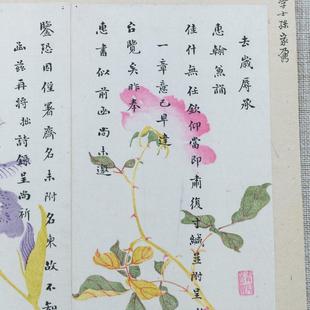 学士孫家鼐
去歲辱承
惠翰兼誦
佳什無任欽仰當即肅復寸緘並附呈
一章意已早達
台覽矣昨奉
惠書似前函尚未邀
鑒恐因僅署齋名未附名柬故不知
函茲再將拙詩錄呈尚祈